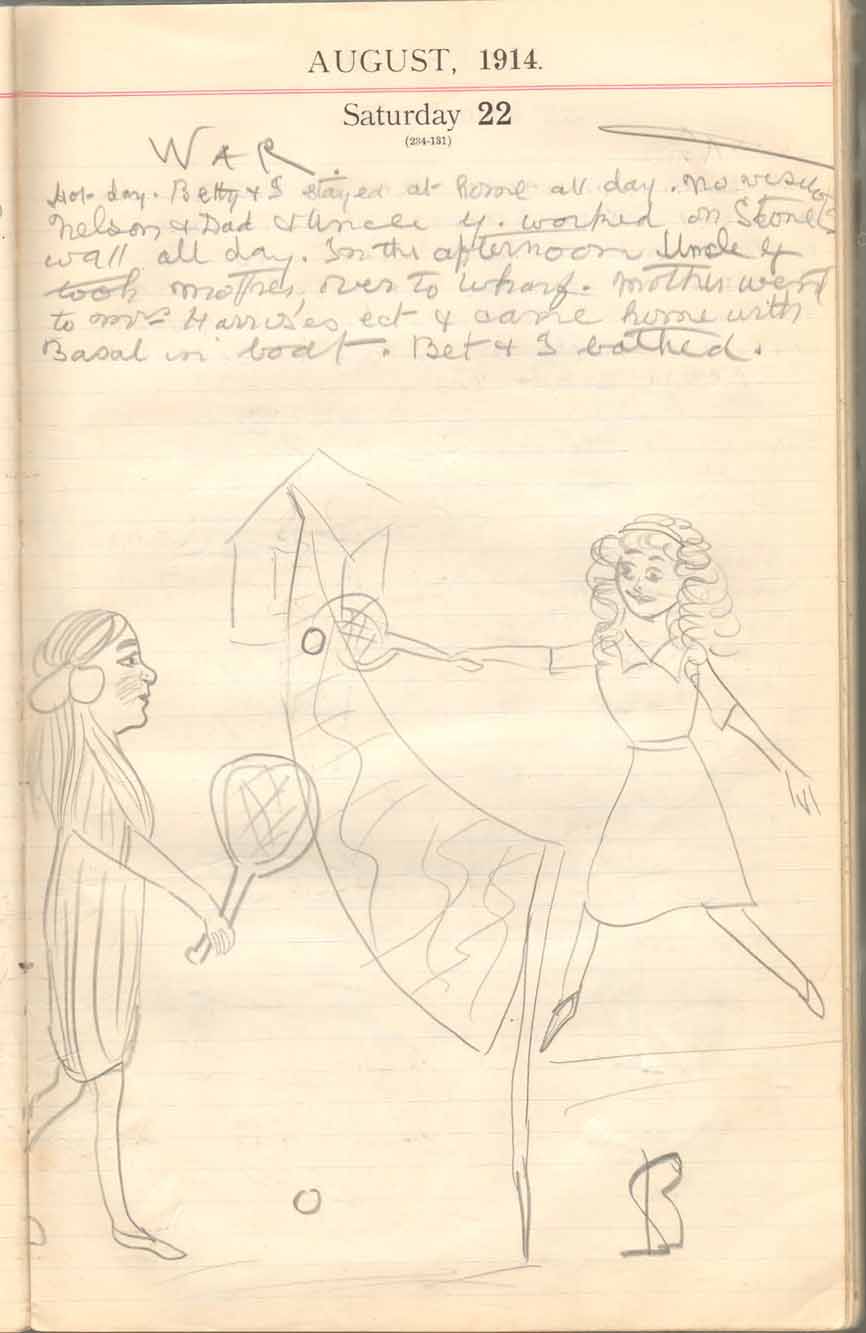 AUGUST, 1914.
Saturday 22
(234-131)
WAR.
Hot day. Betty & I stayed at home all day. No
Nelson & Dad & Uncle y. worked on Stone
wall all day. In the afternoon Uncle y
took mother over to wharf. Mother went
to Mrs Harris'es ect & came home with
Basal in boat. Bet & I bathed.
B